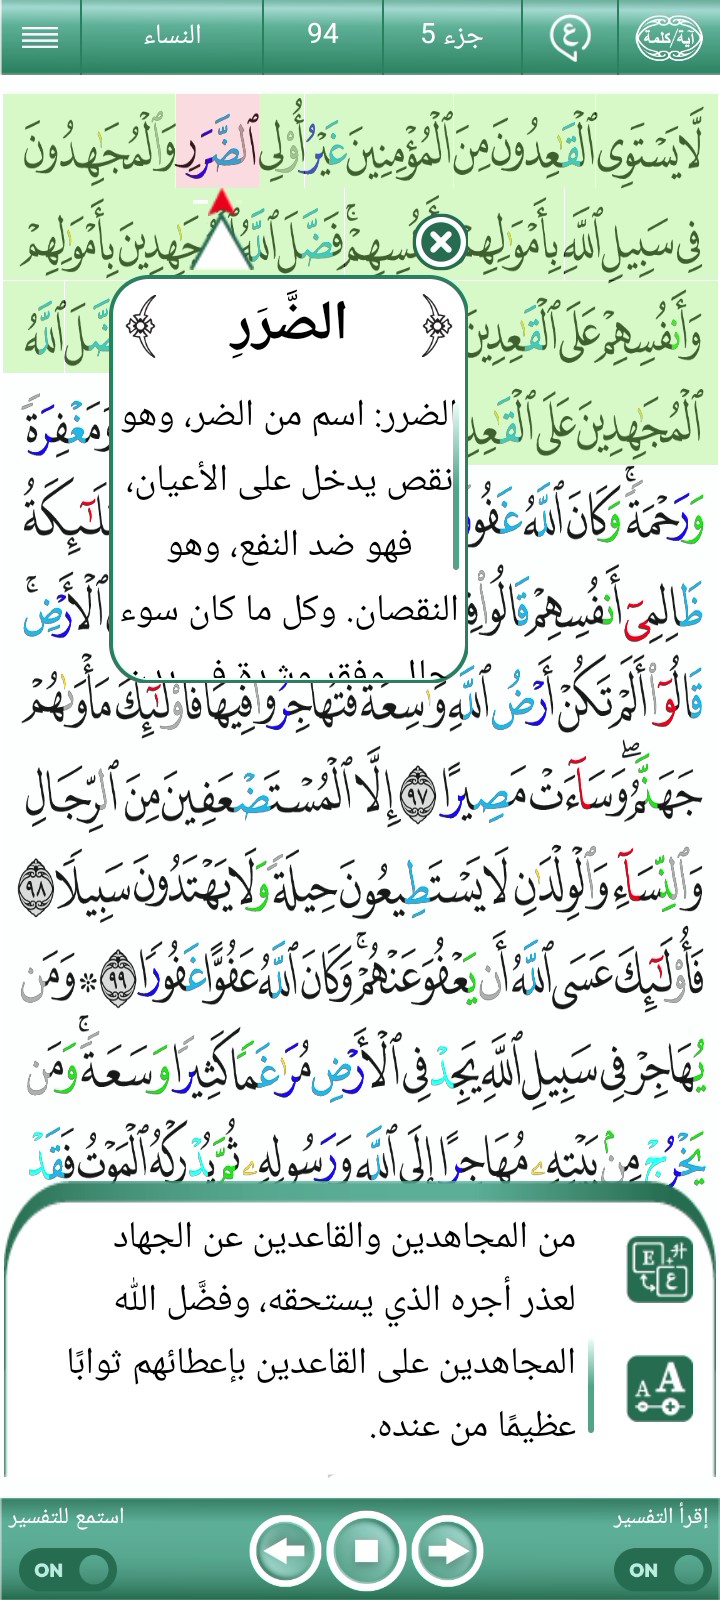 آية/كلمة ع جزء 5 94 النساء
لَّا يَسْتَوِى ٱلْقَـٰعِدُونَ مِنَ ٱلْمُؤْمِنِينَ غَيْرُ أُو۟لِى ٱلضَّرَرِ وَٱلْمُجَـٰهِدُونَ
فِى سَبِيلِ ٱللَّهِ بِأَمْوَٰلِهِمْ فَضَّلَ ٱللَّهُ بِأَمْوَٰلِهِمْ
وَأَنفُسِهِمْ عَلَى ٱلْقَـٰعِدِينَ ٱللَّهُ
ٱلْمُجَـٰهِدِينَ عَلَى وَمَغْفِرَةً
وَرَحْمَةً ۚ وَكَانَ ٱللَّهُ
ظَالِمِىٓ أَنفُسِهِمْ قَالُوا۟ ٱلْأَرْضِ ۚ
قَالُوٓا۟ أَلَمْ تَكُنْ أَرْضُ ٱللَّهِ وَٰسِعَةً فَتُهَاجِرُوا۟ فِيهَا ۚ فَأُو۟لَـٰٓئِكَ مَأْوَىٰهُمْ
جَهَنَّمُ ۖ وَسَآءَتْ مَصِيرًا ٩٧ إِلَّا ٱلْمُسْتَضْعَفِينَ مِنَ ٱلرِّجَالِ
وَٱلنِّسَآءِ وَٱلْوِلْدَٰنِ لَا يَسْتَطِيعُونَ حِيلَةً وَلَا يَهْتَدُونَ سَبِيلًا ٩٨
فَأُو۟لَـٰٓئِكَ عَسَى ٱللَّهُ أَن يَعْفُوَ عَنْهُمْ ۚ وَكَانَ ٱللَّهُ عَفُوًّا غَفُورًا ٩٩ * وَمَن
يُهَاجِرْ فِى سَبِيلِ ٱللَّهِ يَجِدْ فِى ٱلْأَرْضِ مُرَٰغَمًا كَثِيرًا وَسَعَةً ۚ وَمَن
يَخْرُجْ مِنۢ بَيْتِهِۦ مُهَاجِرًا إِلَى ٱللَّهِ وَرَسُولِهِۦ ثُمَّ يُدْرِكْهُ ٱلْمَوْتُ فَقَدْ
الضَّرَرِ
الضرر: اسم من الضر، وهو
نقص يدخل على الأعيان،
فهو ضد النفع، وهو
النقصان. وكل ما كان سوء
من المجاهدين والقاعدين عن الجهاد
لعذر أجره الذي يستحقه، وفضَّل الله
المجاهدين على القاعدين بإعطائهم ثوابًا
عظيمًا من عنده.
إقرأ التفسير استمع للتفسير
ON ON